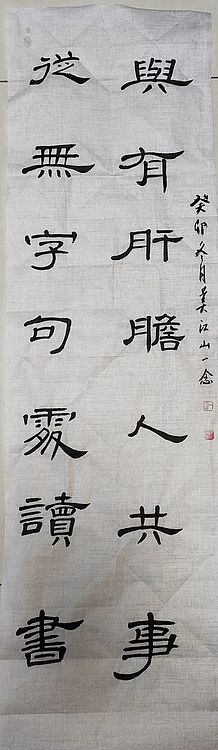 與有肝膽人共事
從無字句處讀書
癸卯冬月吴江山一念